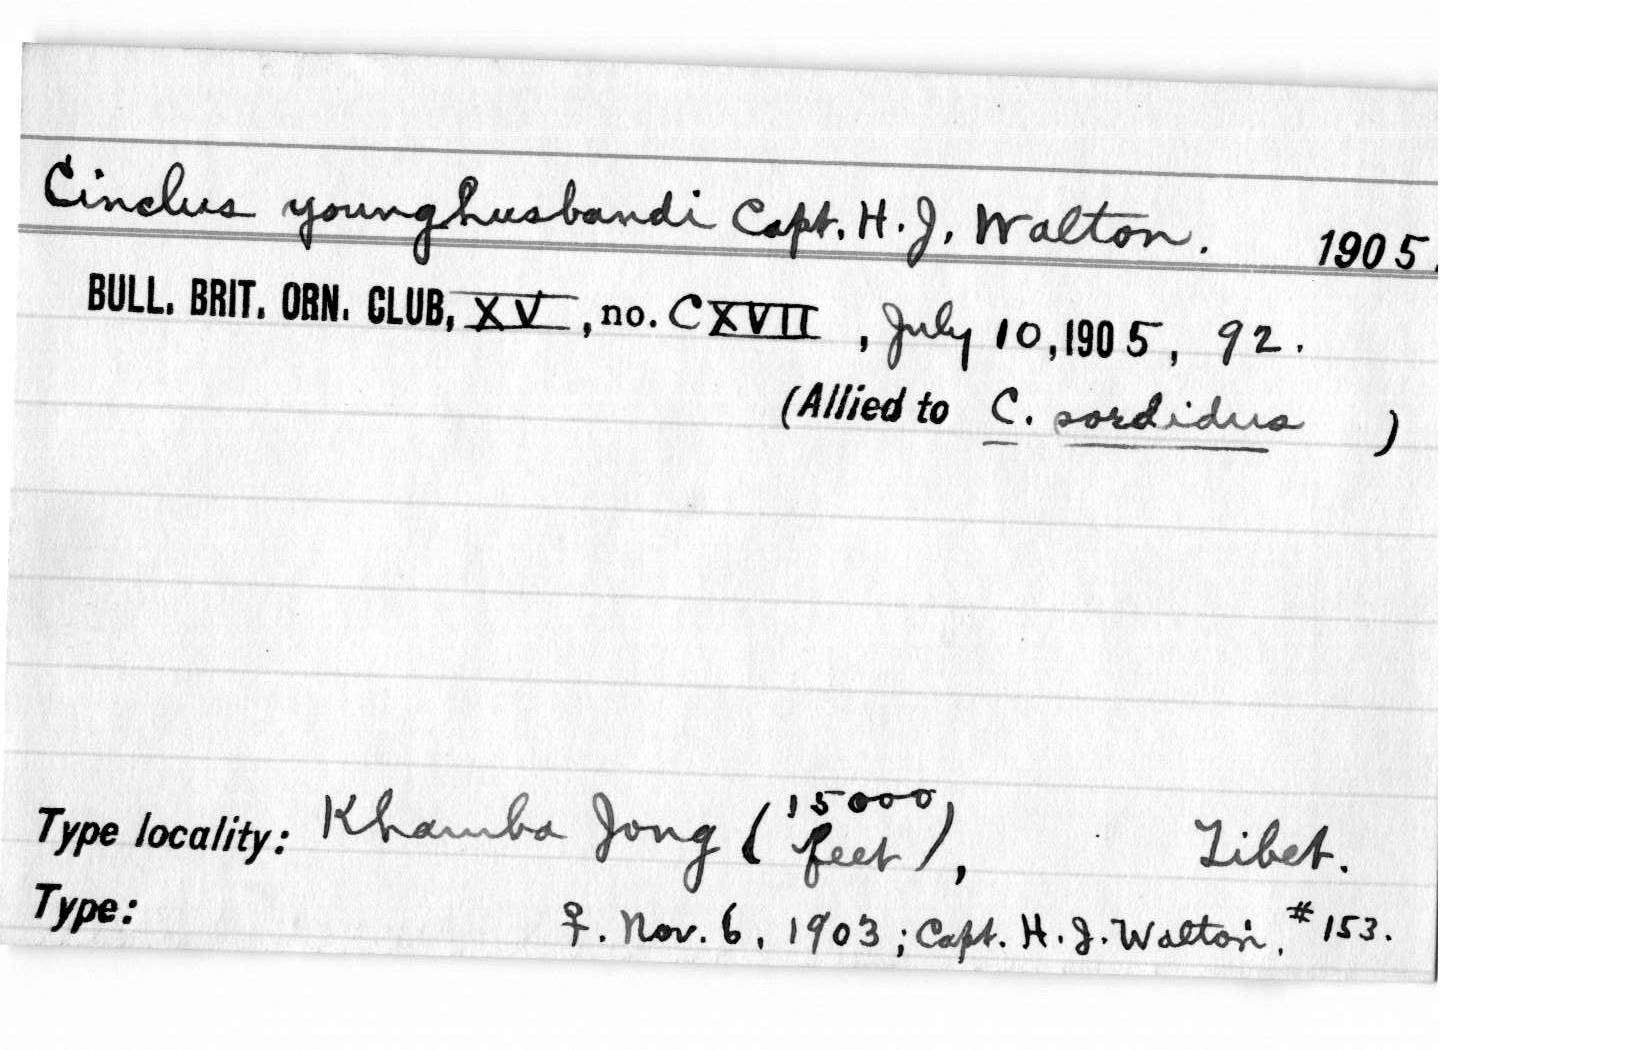 Cinclus younghusbandi Capt. H. J. Walton. 1905.
BULL. BRIT. ORN. CLUB, XV, no. CXVII, July 10, 1905, 92.
(Allied to C. sordidus )
Type locality: Khamba Jong (15000 feet), Tibet.
Type: ♀. Nov. 6, 1903; Capt. H. J. Walton, #153.